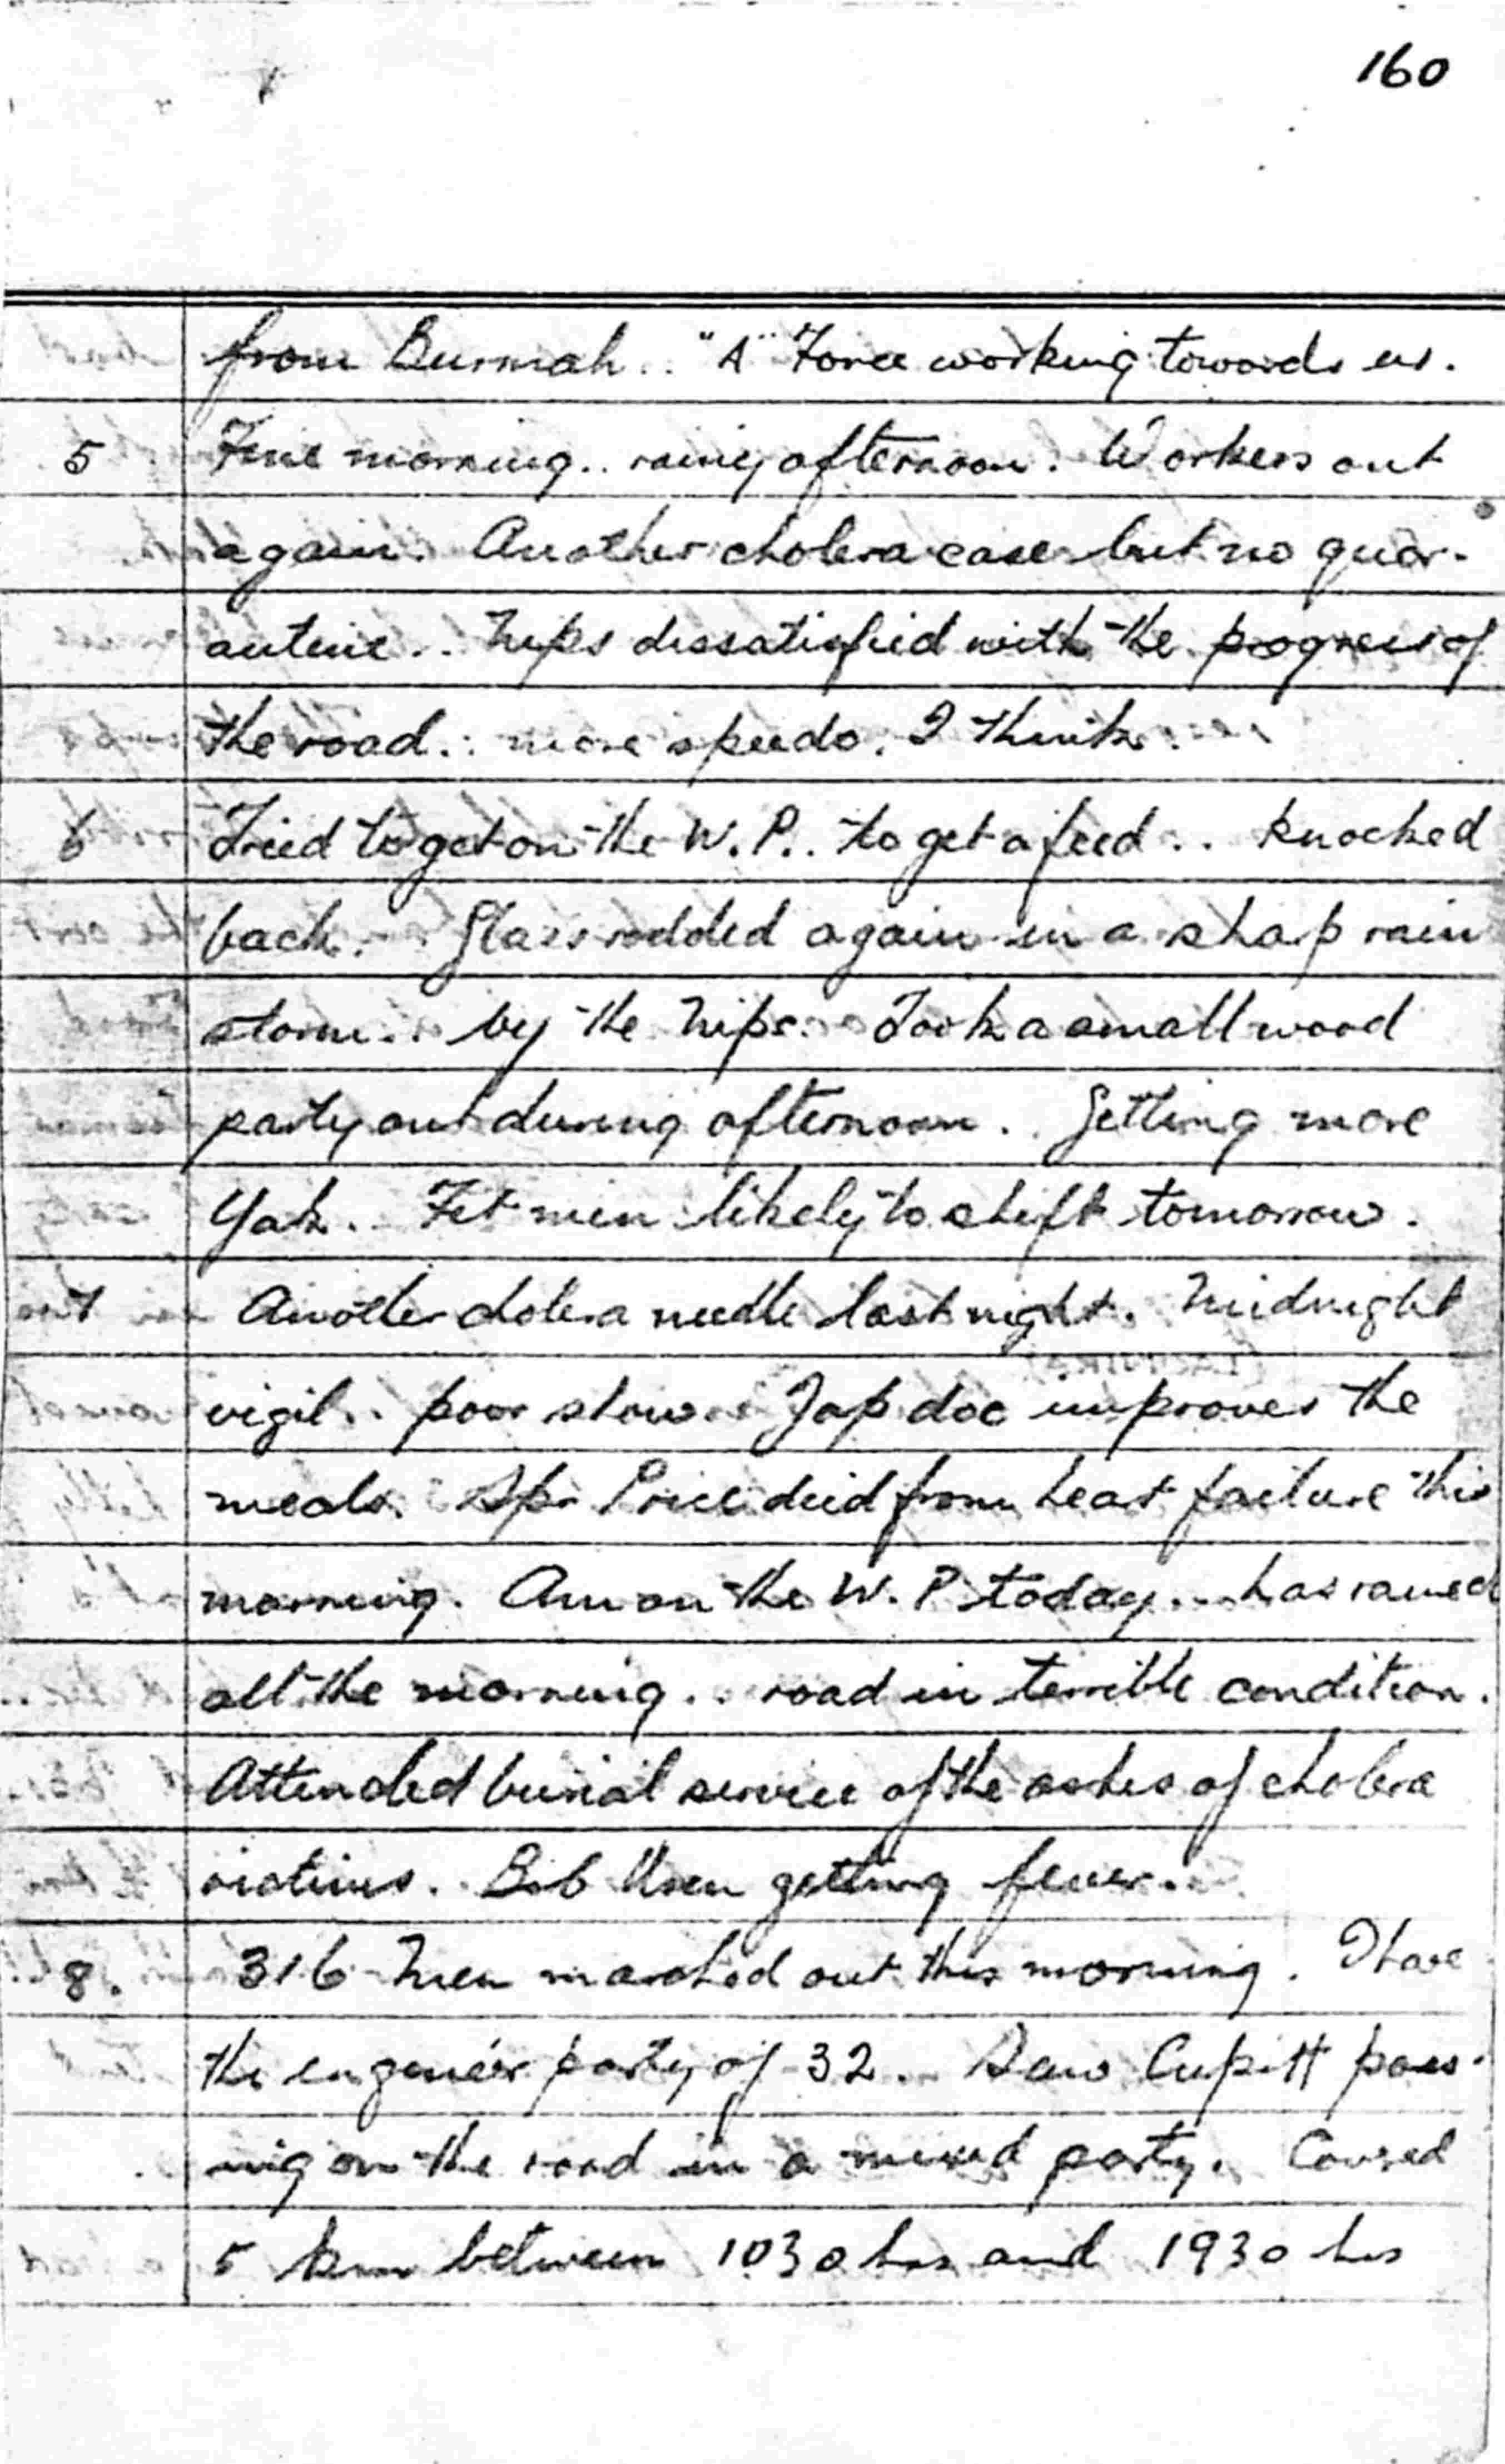 160
from Burmah.. "A" Force working towards us.
5 Fine morning.. rainy afternoon. Workers out
again. Another cholera case but no quar-
antine.. Nips dissatisfied with the progress of
the road.. more speedo. I think.
6 Tried to get on the W.P.. to get a feed.. knocked
back. Glass rodded again in a shap rain
storm.. by the Nips. Took a small wood
party out during afternoon.. Getting more
Yak. Fit men likely to shift tomorrow.
7 Another cholera needle last night. Midnight
vigil.. poor show. Jap doc improves the
meals. Spr Price died from heat failure this
morning. Am on the W.P today... has rained
all the morning.. road in terrible condition.
Attended burial service of the ashes of cholera
victims. Bob getting fever..
8. 316 men marched out this morning. I have
the engineer party of 32.. Saw Cupitt pass-
ing on the road in a mixed party. Coursed
5 km between 1030 hrs and 1930 hrs